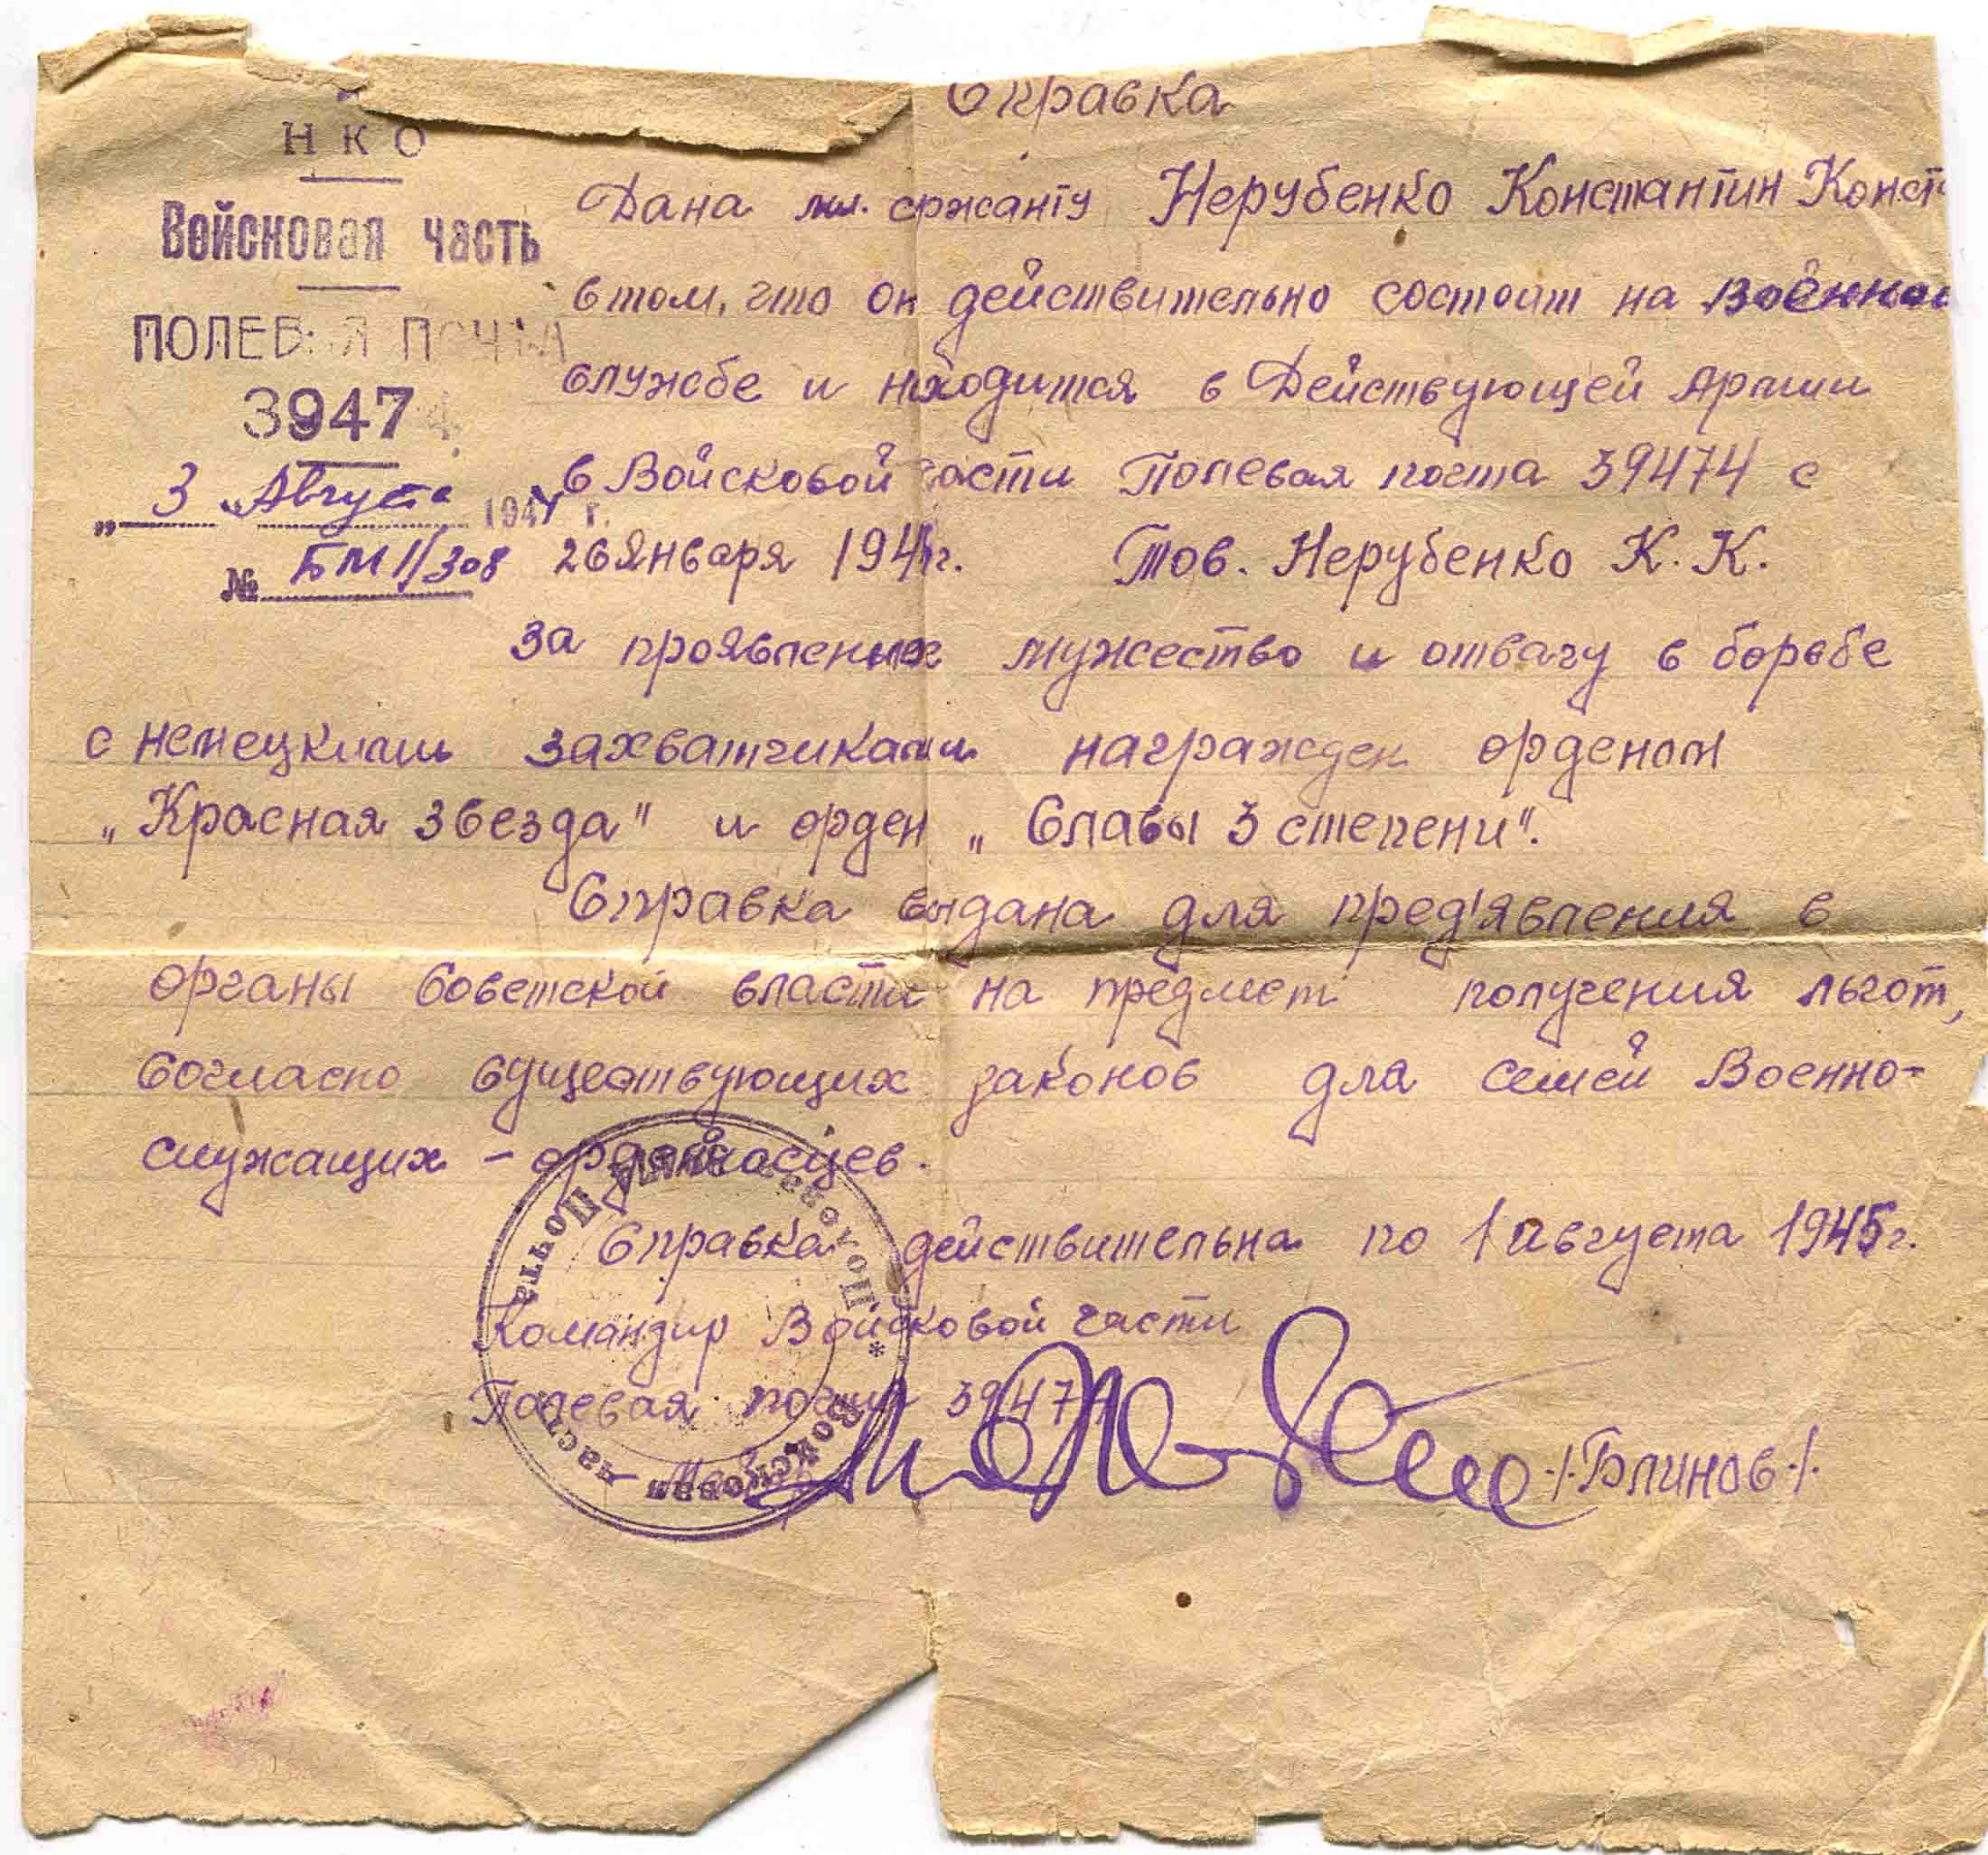 Справка
НКО
Войсковая часть
ПОЛЕВАЯ ПОЧТА
39474
„ 3 „ Августа 1944 г.
№ БМ 1/308
Дана мл. сржанту Нерубенко Константин Конст
в том, что он действительно состоит на военной
службе и находится в Действующей Армии
в Войсковой части Полевая почта 39474 с
26 Января 1944г. Тов. Нерубенко К. К.
за проявленное мужество и отвагу в борьбе
с немецкими захватчиками награжден орденом
„Красная звезда" и орден „Славы 3 степени".
Справка выдана для пред'явления в
органы Советской власти на предмет получения льгот,
согласно существующих законов для семей Военно-
служащих - орденносцев.
Справка действительна по 1 августа 1945г.
Командир Войсковой части
Полевая почта 39474
-/-Блинов-/-
* Полевая Почта
Войсковая часть